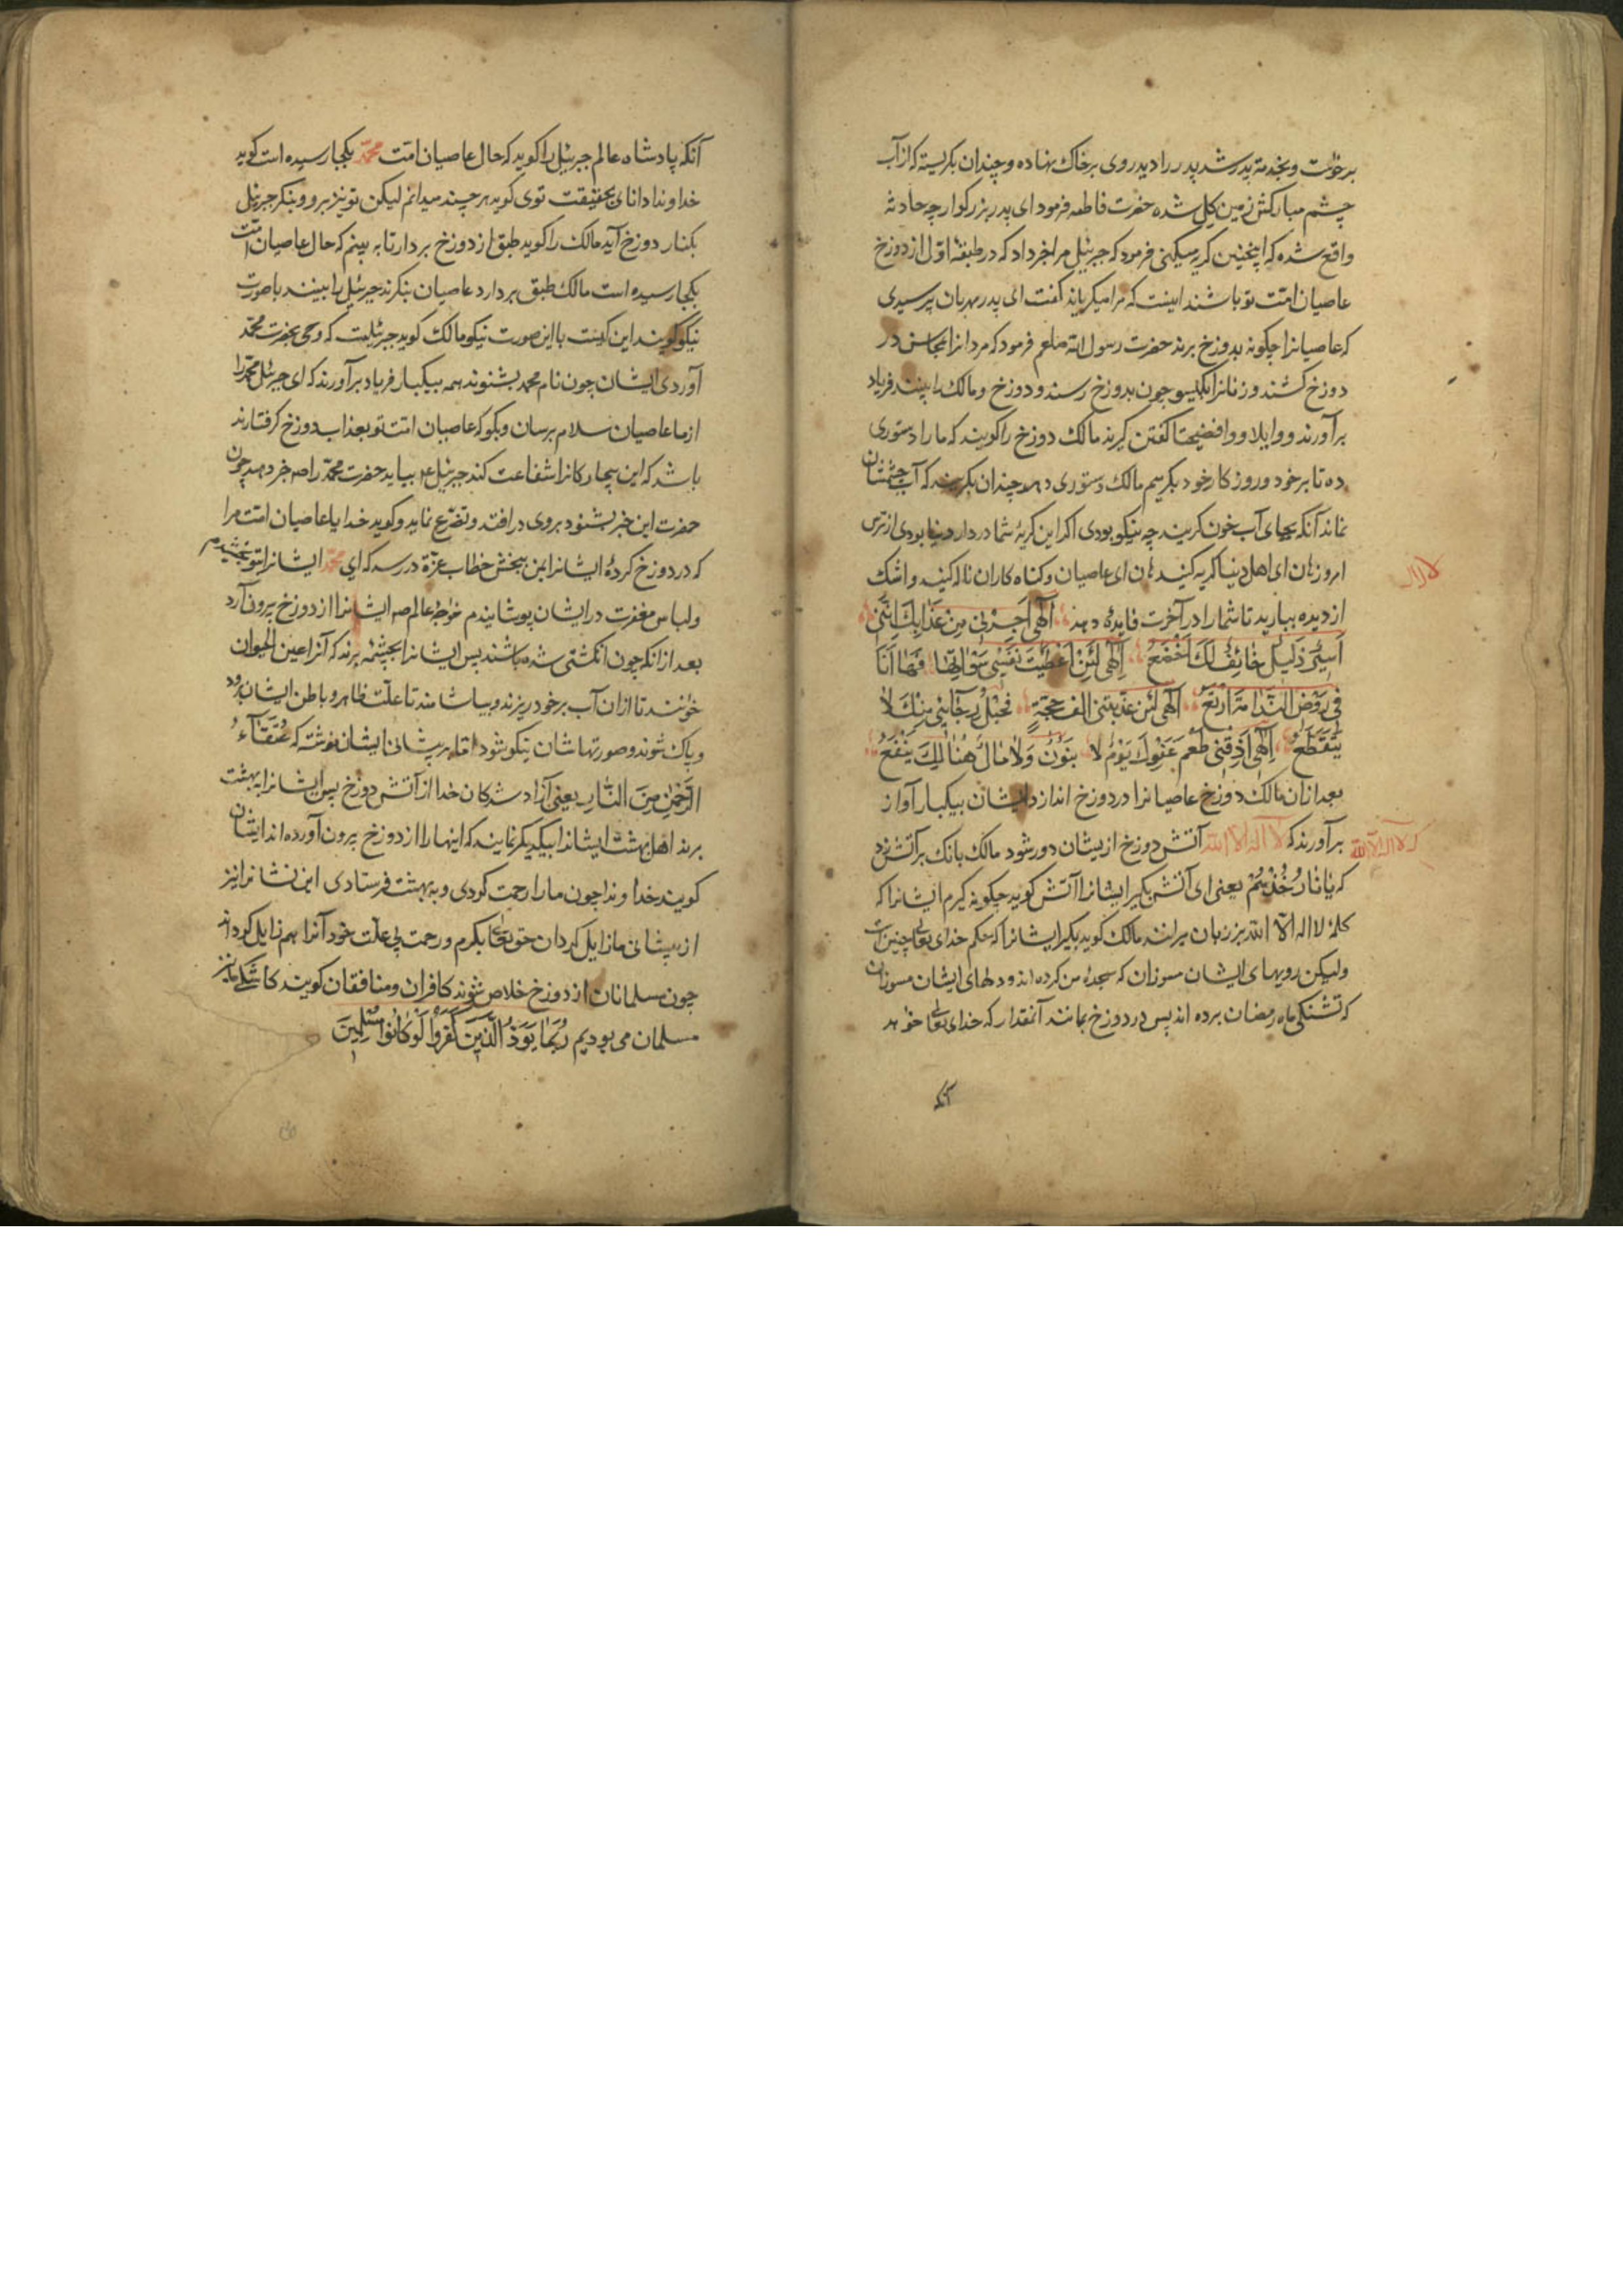 برخواست و بخدمة پدر شد پدر را دید روی برخاک نهاده و چندان بگریسته که از آب
چشم مبارکش زمین کل شده حضرت فاطمه فرمود ای پدر بزرکوار چه حادثه
واقع شده که اینچنین کریه میکنی فرمود که جبرئیل مرا خبر داد که در طبقهٔ اول از دوزخ
عاصیان امّت تو باشند اینست که مرا میکریاند کفت ای پدر مهربان پرسیدی
که عاصیانرا چکونه بدوزخ برند حضرت رسول الله صلعم فرمود که مردانرا بمحاسن در
دوزخ کشند و زنانرا بکیسو چون بدوزخ رسند و دوزخ و مالک را بینند فریاد
برآورند و واویلا و وافضیحتا کفتن کیرند مالک دوزخ را کویند که ما را دستوری
ده تا بر خود و روزکار خود بکرییم مالک دستوری دهد چندان بکریند که آب چشمشان
نماند آنکه بجای آب خون کریند چه نیکو بودی اکر این کریهٔ شما در دار دنیا بودی از ترس
امروز هان ای اهل دنیا کریه کنید هان ای عاصیان و کناه کاران ناله کنید و اشک
لا اله
از دیده ببارید تا شما را در آخرت فایدهٔ دهد اِلٰهی اَجِرْنی مِنْ عَذَابِكَ اِنَّنی
اَسِیرٌ ذَلیلٌ خَائِفٌ لَكَ اَخْضَعُ اِلٰهی لَئِنْ اَعْطَیْتَ نَفْسِی سَؤْالَهَا فَهَا اَنَا
فِی رَوْضِ النَّدَامَةِ اَرْتَعُ اِلٰهی لَئِنْ عَذَّبْتَنی الف حِجَّةٍ فَحَبْلُ رَجَائِی مِنْكَ لَا
یَتَقَطَّعُ اِلٰهی اَذِقْنِی طَعْمَ عَفْوِكَ یَوْمَ لا بَنُونَ وَلَا مَالٌ هُنَالِكَ یَنْفَعُ
بعد از آن مالک دوزخ عاصیانرا در دوزخ اندازد ایشان بیکبار آواز
برآورند که لا اله الا الله آتش دوزخ ازیشان دور شود مالک بانک برآتش زند
که لا اله الا الله
که یا نَارُ خُذِیهُمْ یعنی ای آتش بکیر ایشانرا آتش کوید چکونه کیرم ایشانرا که
کلمهٔ لا اله الّا الله بر زبان میرانند مالک کوید بکیر ایشانرا که حکم خدای تعالی چنین است
ولیکن رویهای ایشان مسوزان که سجدهٔ من کرده اند و دلهای ایشان مسوزان
که تشنکی ماه رمضان برده اند پس در دوزخ بمانند آنمقدار که خدای تعالی خواهد
آنکه
آنکه پادشاه عالم جبرئیل را کوید که حال عاصیان امّت محمّد بکجا رسیده است کوید
خداوندا دانای بحقیقت توی کوید هر چند میدانم لیکن تو نیز برو و بنکر جبرئیل
بکنار دوزخ آید مالک را کوید طبق از دوزخ بردار تا به بینم که حال عاصیان امت
بکجا رسیده است مالک طبق بردارد عاصیان بنکرند جبرئیل را بینند با صورت
نیکو کویند این کیست با این صورت نیکو مالک کوید جبرئیلست که وحی بحضرت محمّد
آوردی ایشان چون نام محمد بشنوند همه بیکبار فریاد برآورند که ای جبرئیل محمّد را
از ما عاصیان سلام برسان و بکو که عاصیان امّت تو بعذاب دوزخ کرفتارند
باشد که این بیچارکانرا شفاعت کند جبرئیل ع بیاید حضرت محمّد را ص خبر دهد چون
حضرت این خبر بشنود بروی درافتد و تضرّع نماید و کوید خدایا عاصیان امّت مرا
که در دوزخ کردهٔ ایشانرا بمن ببخش خطاب عزّة در رسد که ای محمّد ایشانرا بتو بخشیدم
و لباس مغفرت در ایشان پوشانیدم خواجهٔ عالم ص ایشانرا از دوزخ بیرون آرد
بعد از آنکه چون انکشتی شده باشند پس ایشانرا بچشمهٔ برند که آنرا عین الحیوان
خوانند تا ازان آب بر خود ریزند و بیاشامند تا علّت ظاهر و باطن ایشان برود
و پاک شوند و صورتهاشان نیکو شود امّا بر پیشانی ایشان نوشته که عُتَقَآءُ
الرَّحْمٰنِ مِنَ النَّارِ یعنی آزاد شدکان خدا از آتش دوزخ پس ایشانرا ببهشت
برند اهل بهشت ایشانرا بیکدیکر نمایند که اینها را از دوزخ بیرون آورده اند ایشان
کویند خداوندا چون ما را رحمت کردی و به بهشت فرستادی این نشانرا نیز
از پیشانی ما زایل کردان حق تعالی بکرم و رحمت بی علّت خود آنرا هم زایل کرداند
چون مسلمانان از دوزخ خلاص شوند کافران و منافقان کویند کاشکی ما نیز
مسلمان می بودیم رُبَمَا یَوَدُّ الَّذِینَ کَفَرُوا لَوْ کَانُوا مُسْلِمِینَ